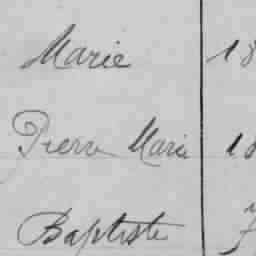 Marie 18
Pierre Marie 18
Baptiste